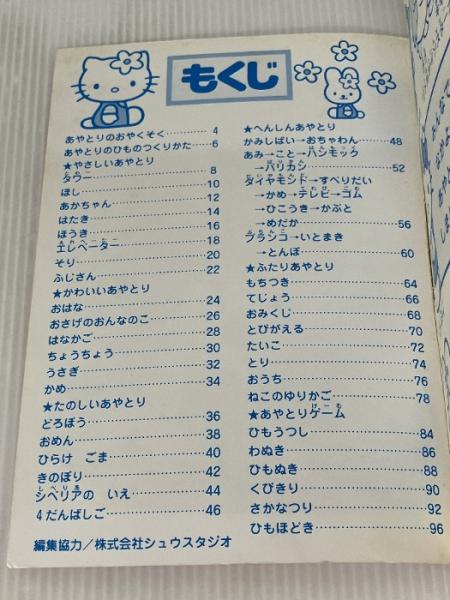 もくじ
あやとりのおやくそく………… 4
あやとりのひものつくりかた…… 6
★やさしいあやとり
タワー………… 8
ほし………… 10
あかちゃん………… 12
はたき………… 14
ほうき………… 16
エレベーター………… 18
そり………… 20
ふじさん………… 22
★かわいいあやとり
おはな………… 24
おさげのおんなのこ………… 26
はなかご………… 28
ちょうちょう………… 30
うさぎ………… 32
かめ………… 34
★たのしいあやとり
どろぼう………… 36
おめん………… 38
ひらけ ごま………… 40
きのぼり………… 42
シベリアの いえ………… 44
4だんばしご………… 46
編集協力/株式会社シュウスタジオ
★へんしんあやとり
かみしばい→おちゃわん…… 48
あみ→こと→ハンモック
→バリカン………… 52
ダイヤモンド→すべりだい
→かめ→テレビ→ゴム
→ひこうき→かぶと
→めだか………… 56
ブランコ→いとまき
→とんぼ………… 60
★ふたりあやとり
もちつき………… 64
てじょう………… 66
おみくじ………… 68
とびがえる………… 70
たいこ………… 72
とり………… 74
おうち………… 76
ねこのゆりかご………… 78
★あやとりゲーム
ひもうつし………… 84
わぬき………… 86
ひもぬき………… 88
くびきり………… 90
さかなつり………… 92
ひもほどき………… 96